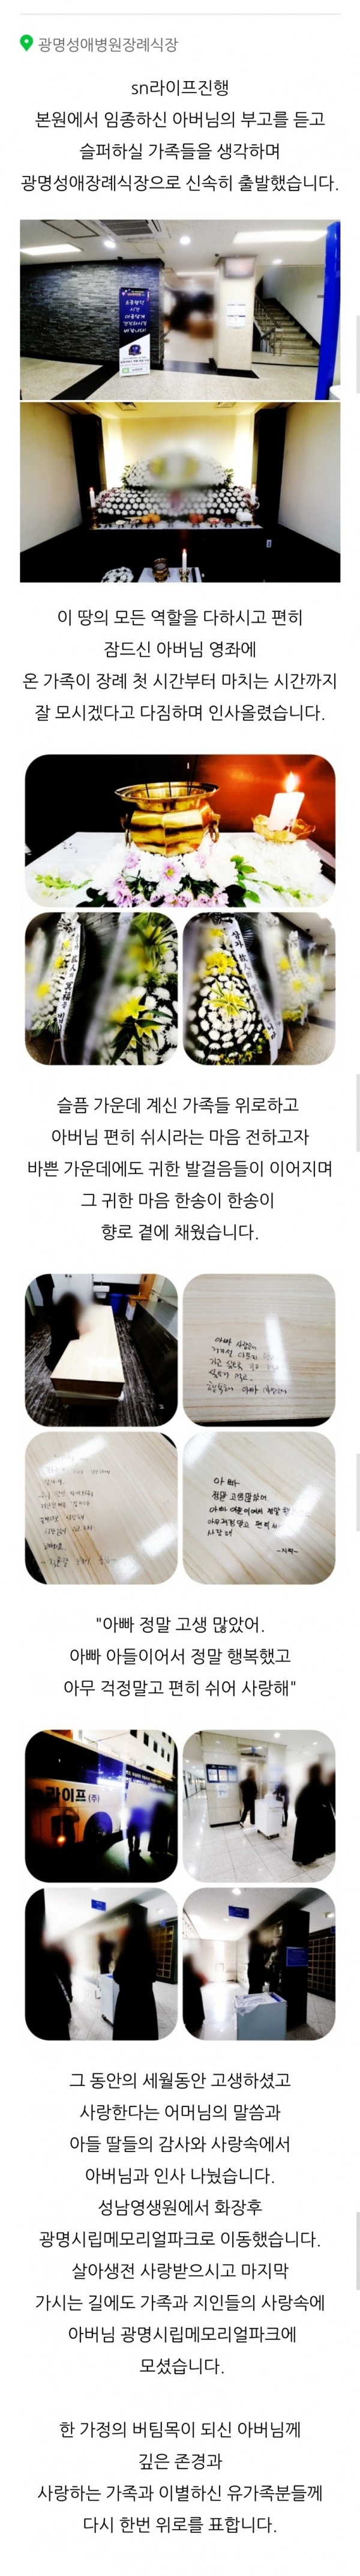 광명성애병원장례식장
sn라이프진행
본원에서 임종하신 아버님의 부고를 듣고
슬퍼하실 가족들을 생각하며
광명성애장례식장으로 신속히 출발했습니다.
이 땅의 모든 역할을 다하시고 편히
잠드신 아버님 영좌에
온 가족이 장례 첫 시간부터 마치는 시간까지
잘 모시겠다고 다짐하며 인사올렸습니다.
슬픔 가운데 계신 가족들 위로하고
아버님 편히 쉬시라는 마음 전하고자
바쁜 가운데에도 귀한 발걸음들이 이어지며
그 귀한 마음 한송이 한송이
향로 곁에 채웠습니다.
아빠
정말 고생많았어
"아빠 정말 고생 많았어.
아빠 아들이어서 정말 행복했고
아무 걱정말고 편히 쉬어 사랑해"
라이프(주)
그 동안의 세월동안 고생하셨고
사랑한다는 어머님의 말씀과
아들 딸들의 감사와 사랑속에서
아버님과 인사 나눴습니다.
성남영생원에서 화장후
광명시립메모리얼파크로 이동했습니다.
살아생전 사랑받으시고 마지막
가시는 길에도 가족과 지인들의 사랑속에
아버님 광명시립메모리얼파크에
모셨습니다.
한 가정의 버팀목이 되신 아버님께
깊은 존경과
사랑하는 가족과 이별하신 유가족분들께
다시 한번 위로를 표합니다.